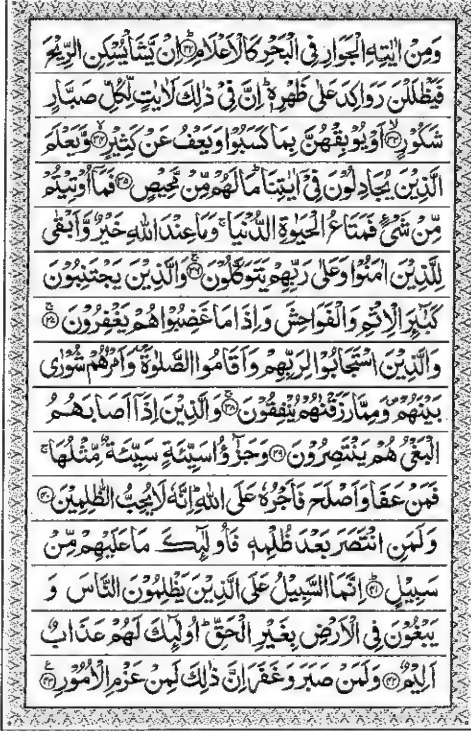 وَمِنْ اٰيٰتِهِ الْجَوَارِ فِي الْبَحْرِ كَالْاَعْلَامِ ﴿۳۲﴾ اِنْ يَّشَاْ يُسْكِنِ الرِّيْحَ
فَيَظْلَلْنَ رَوَاكِدَ عَلٰى ظَهْرِهٖ اِنَّ فِيْ ذٰلِكَ لَاٰيٰتٍ لِّكُلِّ صَبَّارٍ
شَكُوْرٍ ﴿۳۳﴾ اَوْ يُوْبِقْهُنَّ بِمَا كَسَبُوْا وَيَعْفُ عَنْ كَثِيْرٍ ﴿۳۴﴾ وَّيَعْلَمَ
الَّذِيْنَ يُجَادِلُوْنَ فِيْٓ اٰيٰتِنَا مَا لَهُمْ مِّنْ مَّحِيْصٍ ﴿۳۵﴾ فَمَآ اُوْتِيْتُمْ
مِّنْ شَيْءٍ فَمَتَاعُ الْحَيٰوةِ الدُّنْيَا ۚ وَمَا عِنْدَ اللّٰهِ خَيْرٌ وَّاَبْقٰى
لِلَّذِيْنَ اٰمَنُوْا وَعَلٰى رَبِّهِمْ يَتَوَكَّلُوْنَ ﴿۳۶﴾ وَالَّذِيْنَ يَجْتَنِبُوْنَ
كَبٰٓئِرَ الْاِثْمِ وَالْفَوَاحِشَ وَاِذَا مَا غَضِبُوْا هُمْ يَغْفِرُوْنَ ﴿۳۷﴾
وَالَّذِيْنَ اسْتَجَابُوْا لِرَبِّهِمْ وَاَقَامُوا الصَّلٰوةَ وَاَمْرُهُمْ شُوْرٰى
بَيْنَهُمْ وَمِمَّا رَزَقْنٰهُمْ يُنْفِقُوْنَ ﴿۳۸﴾ وَالَّذِيْنَ اِذَآ اَصَابَهُمُ
الْبَغْيُ هُمْ يَنْتَصِرُوْنَ ﴿۳۹﴾ وَجَزٰٓؤُا سَيِّئَةٍ سَيِّئَةٌ مِّثْلُهَا ۚ
فَمَنْ عَفَا وَاَصْلَحَ فَاَجْرُهٗ عَلَى اللّٰهِ اِنَّهٗ لَا يُحِبُّ الظّٰلِمِيْنَ ﴿۴۰﴾
وَلَمَنِ انْتَصَرَ بَعْدَ ظُلْمِهٖ فَاُولٰٓئِكَ مَا عَلَيْهِمْ مِّنْ
سَبِيْلٍ ﴿۴۱﴾ اِنَّمَا السَّبِيْلُ عَلَى الَّذِيْنَ يَظْلِمُوْنَ النَّاسَ وَ
يَبْغُوْنَ فِي الْاَرْضِ بِغَيْرِ الْحَقِّ ۗ اُولٰٓئِكَ لَهُمْ عَذَابٌ
اَلِيْمٌ ﴿۴۲﴾ وَلَمَنْ صَبَرَ وَغَفَرَ اِنَّ ذٰلِكَ لَمِنْ عَزْمِ الْاُمُوْرِ ﴿۴۳﴾